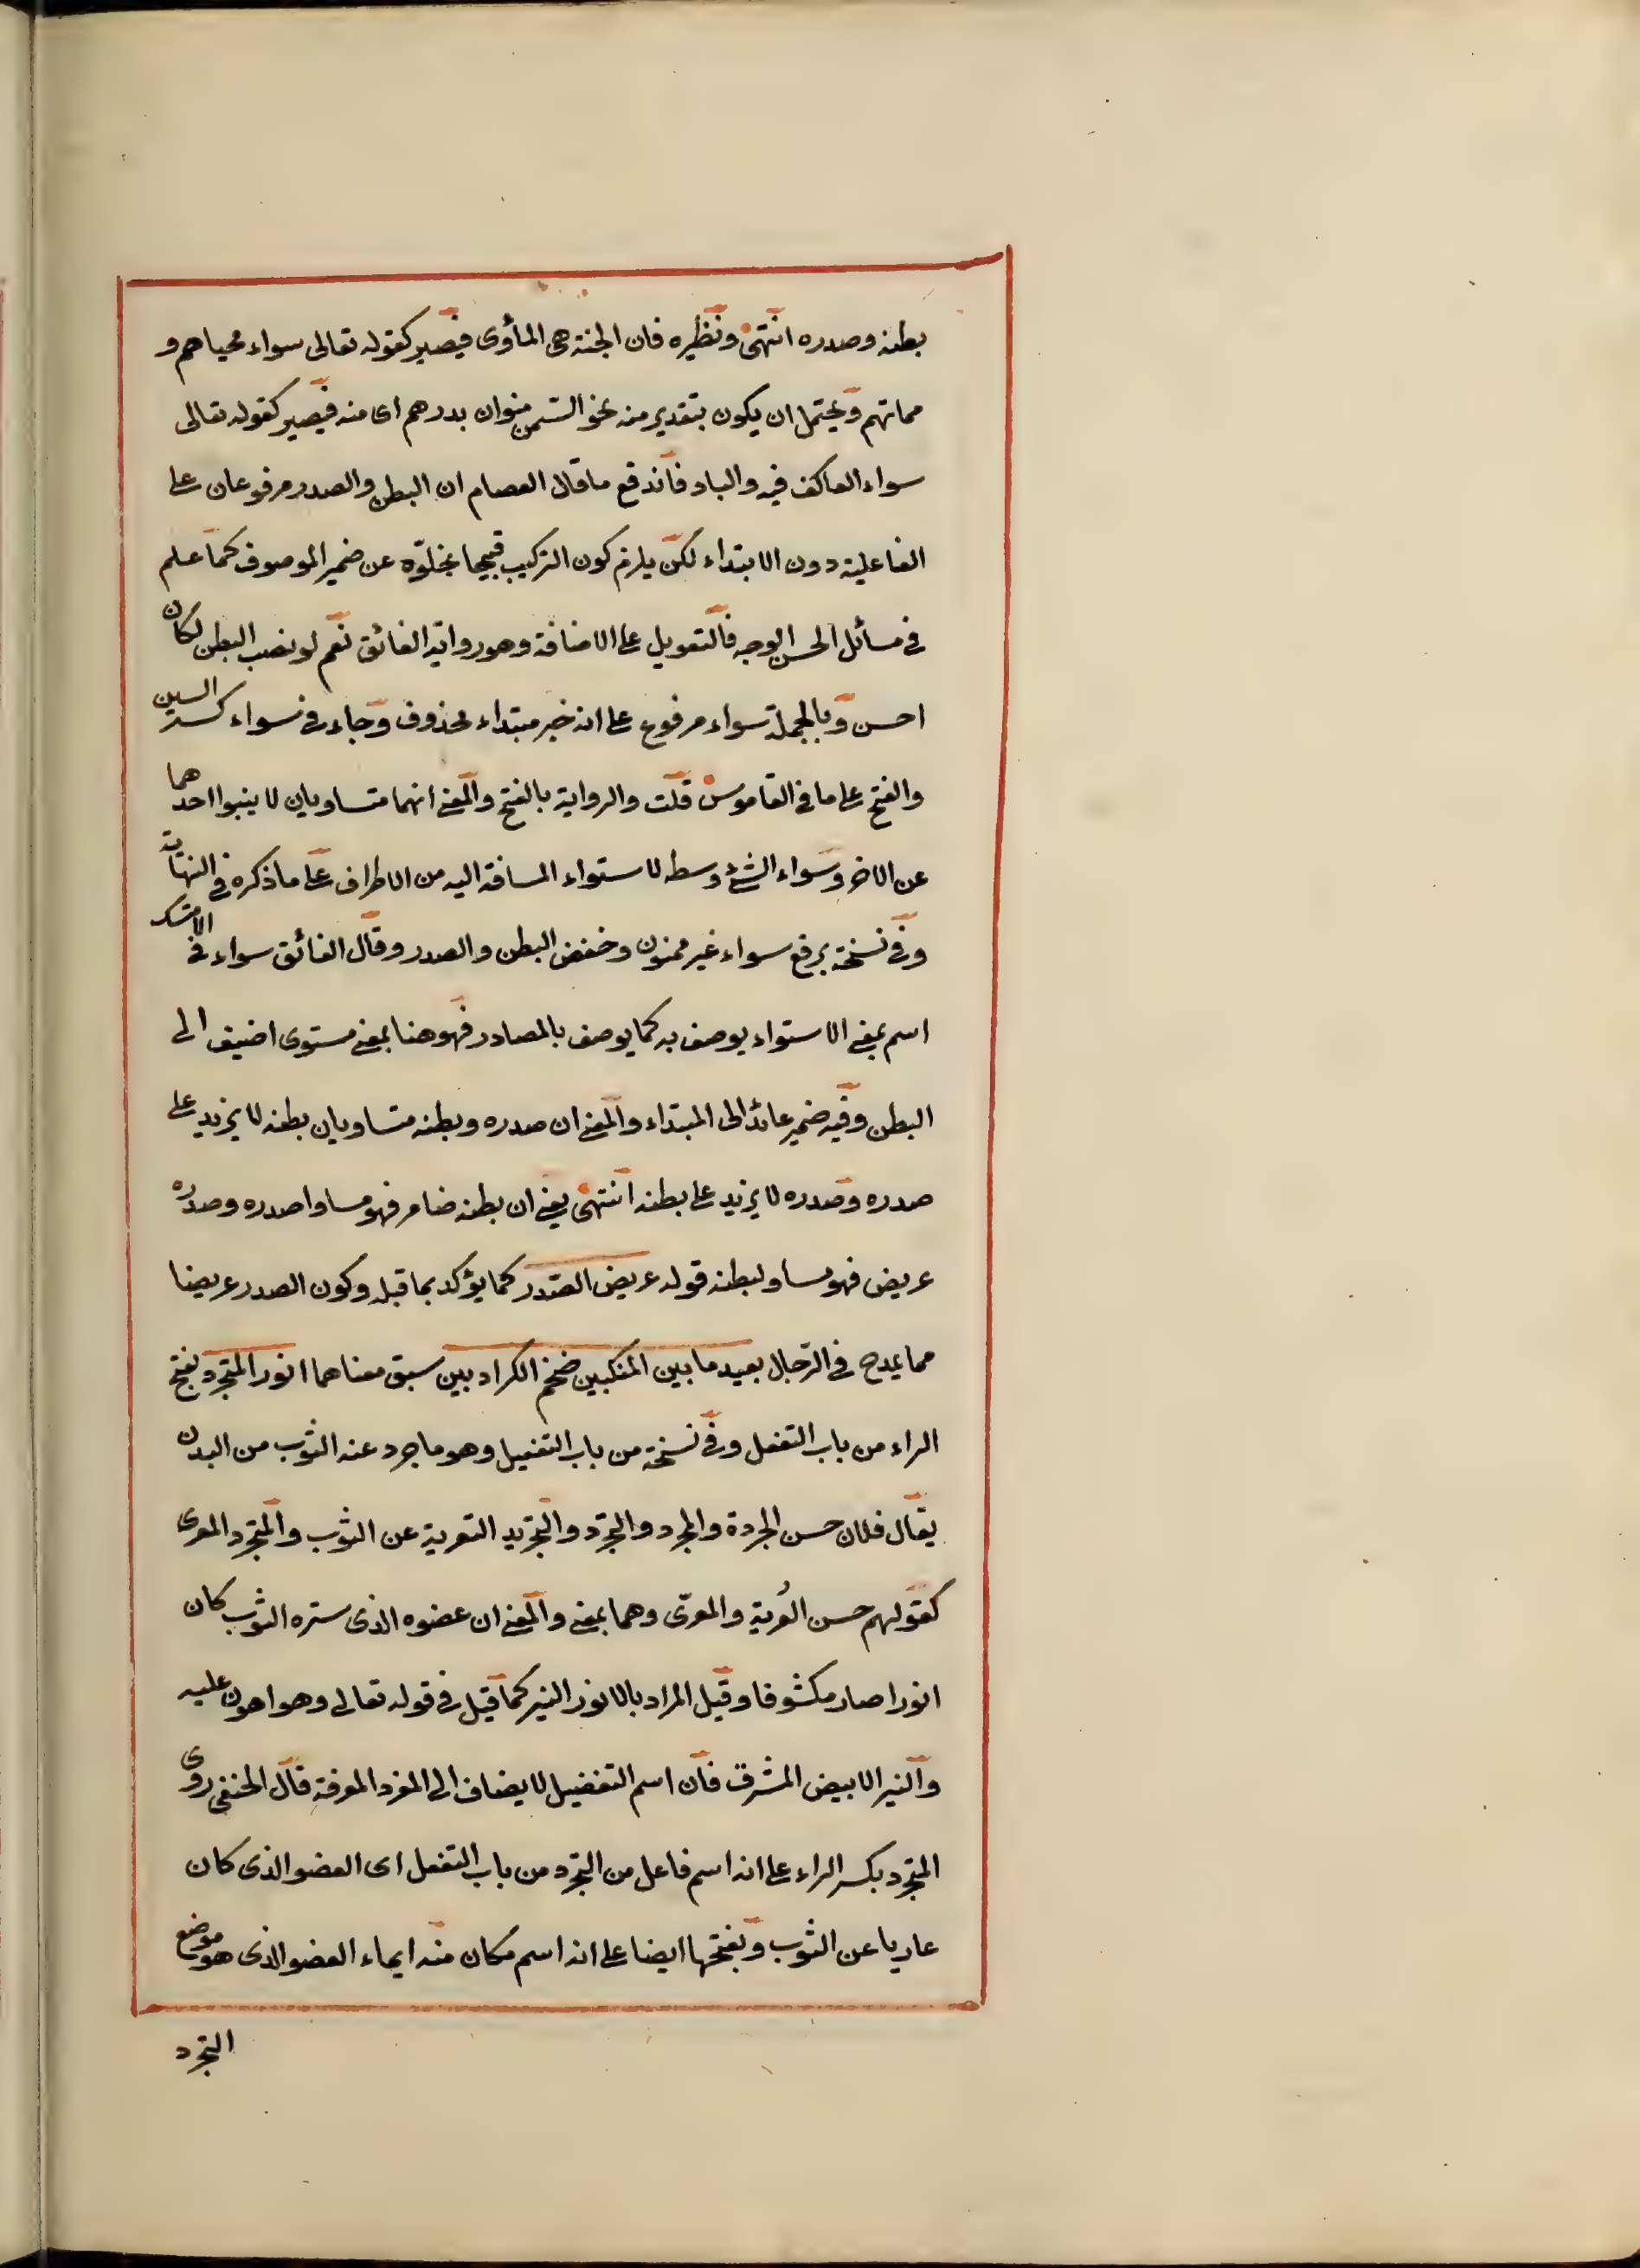 بطنه وصدره انتهى ونظيره فان الجنة هى المأوى فيصير كقوله تعالى سواء محياهم و
مماتهم ويحتمل ان يكون بتقدير منه نحو السمن منوان بدرهم اى منه فيصير كقوله تعالى
سواء العاكف فيه والباد فاندفع ما قال العصام ان البطن والصدر مرفوعان على
الفاعلية دون الابتداء لكن يلزم كون التركيب قبيحا بخلوّه عن ضمير الموصوف كما علم
فى مسائل الحسن الوجه فالتعويل على الاضافة وهو رواية الفائق نعم لو نصب البطن لكان
احسن وبالجملة سواء مرفوع على انه خبر مبتداء محذوف وجاء فى سواء كسر السين
والفتح على ما فى القاموس قلت والرواية بالفتح والمعنى انهما متساويان لا ينبوا احدهما
عن الاخر وسواء الشئ وسطه لاستواء المسافة اليه من الاطراف على ما ذكره فى النهاية
وفى نسخة برفع سواء غير ممنون وخفض البطن والصدر وقال الفائق سواء فى الاصل
اسم بمعنى الاستواء يوصف به كما يوصف بالمصادر فهو هنا بمعنى مستوى اضيف الى
البطن وفيه ضمير عائد الى المبتداء والمعنى ان صدره وبطنه متساويان بطنه لا يزيد على
صدره وصدره لا يزيد على بطنه انتهى يعنى ان بطنه ضامر فهو مساوا صدره وصدره
عريض فهو مساو لبطنه قوله عريض الصّدر كما يؤكد بما قبله وكون الصدر عريضا
مما يمدح فى الرّجال بعيد ما بين المنكبين ضخم الكراديين سبق معناهما انور المتجرد بفتح
الراء من باب التفعل وفى نسخة من باب التفعيل وهو ما جرد عنه الثوب من البدن
يقال فلان حسن الجردة والمجرد والمتجرّد والتجريد التعرية عن الثوب والمتجرد المعرى
كقولهم حسن العُرية والمعرّى وهما بمعنى والمعنى ان عضوه الذى ستره الثوب كان
انورا صار مكشوفا وقيل المراد بالانور النير كما قيل فى قوله تعالى وهو اهون عليه
والنير الابيض المشرق فان اسم التفضيل لا يضاف الى المفرد المعرفة قال الحنفى روى
المتجرد بكسر الراء على انه اسم فاعل من التجرد من باب التفعل اى العضو الذى كان
عاريا عن الثوب وبفتحها ايضا على انه اسم مكان منه ايماء العضو الذى هو موضع
التجرد